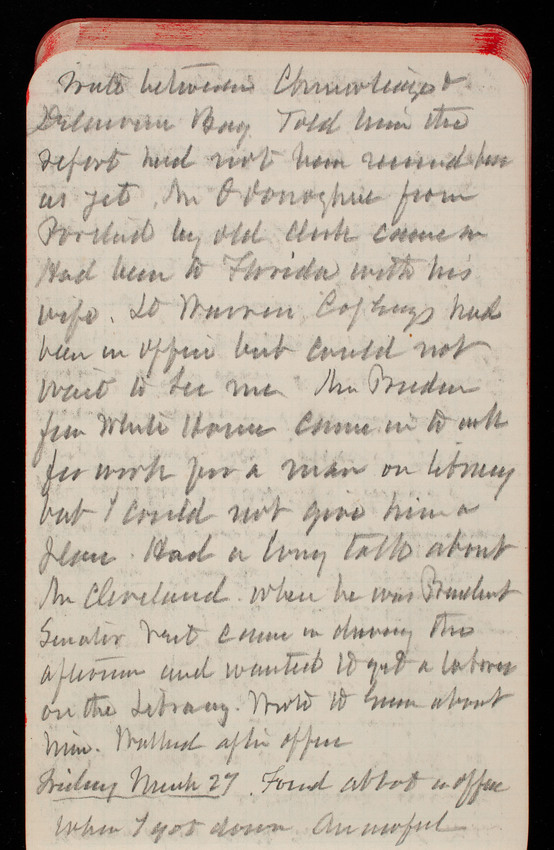 between Chesapeake &
Delaware Bay Told him the
report had not been received here
as yet, Mr O'Donoghue from
Portland by old clerk came in
Had been to Florida with his
wife. Lt Warren, Cof Engs had
been in office but could not
wait to see me Mr Pruden
from White House came in to ask
for work for a man on library
but I could not give him a
place. Had a long talk about
Mr Cleveland when he was President
Senator Vest came in during the
afternoon and wanted to get a laborer
on the Library. Wrote to about
him. Walked after office
Friday March 27. Found Abbot in office
when I got down. An awful